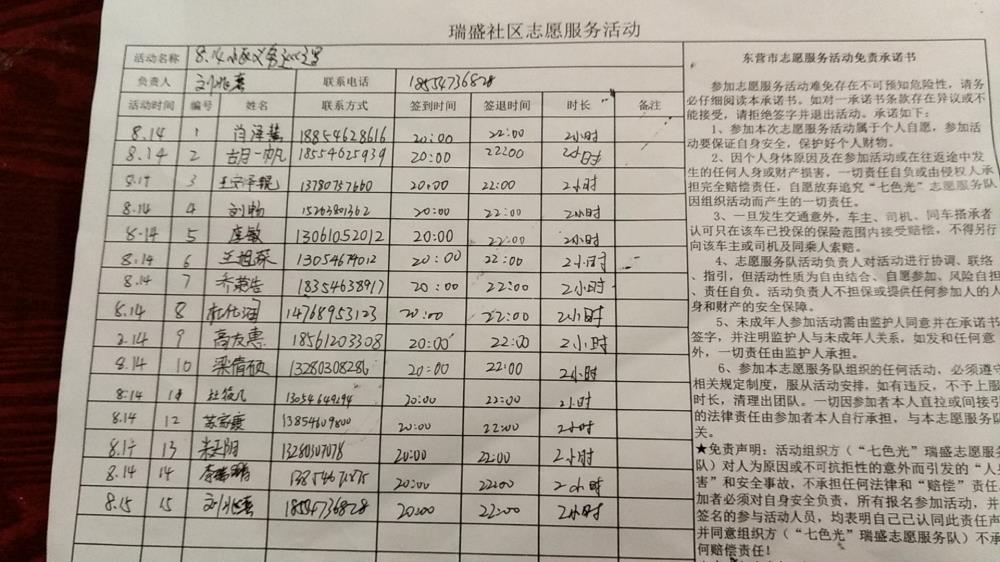 瑞盛社区志愿服务活动
活动名称 8.14
负责人 刘兆春 联系电话 18554736828
活动时间 编号 姓名 联系方式 签到时间 签退时间 时长 备注
8.14 1 肖泽慧 18854628616 20:00 22:00 2小时
8.14 2 胡一帆 18554625939 20:00 22:00 2小时
3 13780737660 20:00 22:00 2小时
8.14 4 刘畅 15263801362 20:00 22:00 2小时
8.14 5 庞敏 13061052012 20:00 22:00 2小时
8.14 6 13054674012 20:00 22:00 2小时
8.14 7 乔荣浩 18354638917 20:00 22:00 2小时
8.14 8 杜化涵 14768953123 20:00 22:00 2小时
9 高友惠 18561203308 20:00 22:00 2小时
8.14 10 梁倩硕 13280308286 20:00 22:00 2小时
8.14 11 20:00 22:00 2小时
8.14 12 13854609800 20:00 22:00 2小时
13 20:00 22:00 2小时
8.14 14 20:00 22:00 2小时
8.15 15 刘兆春 18554736828 20:00 22:00 2小时
东营市志愿服务活动免责承诺书
参加志愿服务活动难免存在不可预知危险性，请务
必仔细阅读本承诺书。如对一承诺书条款存在异议或不
能接受，请拒绝签字并退出活动。承诺如下：
1、参加本次志愿服务活动属于个人自愿，参加活
动要保证自身安全，保护好个人财物。
2、因个人身体原因及在参加活动或在往返途中发
生的任何人身或财产损害，一切责任自负或由侵权人承
担完全赔偿责任，自愿放弃追究“七色光”志愿服务队
因组织活动而产生的一切责任。
3、一旦发生交通意外，车主、司机、同车搭承者
认可只在该车已投保的保险范围内接受赔偿，不得另行
向该车主或司机及同乘人索赔。
4、志愿服务队活动负责人对活动进行协调、联络
、指引，但活动性质为自由结合、自愿参加、风险自担
、责任自负。活动负责人不担保或提供任何参加人的人
身和财产的安全保障。
5、未成年人参加活动需由监护人同意并在承诺书
签字，并注明监护人与未成年人关系，如发和任何意
外，一切责任由监护人承担。
6、参加本志愿服务队组织的任何活动，必须遵守
相关规定制度，服从活动安排，如有违反，不予上服
时长，清理出团队。一切因参加者本人直拉或间接引
的法律责任由参加者本人自行承担，与本志愿服务队
关。
★免责声明：活动组织方（“七色光”瑞盛志愿服务
队）对人为原因或不可抗拒性的意外而引发的“人身
害”和安全事故，不承担任何法律和“赔偿”责任
加者必须对自身安全负责，所有报名参加活动，并
签名的参与活动人员，均表明自己已认同此责任声
并同意组织方（“七色光”瑞盛志愿服务队）不承
何赔偿责任！